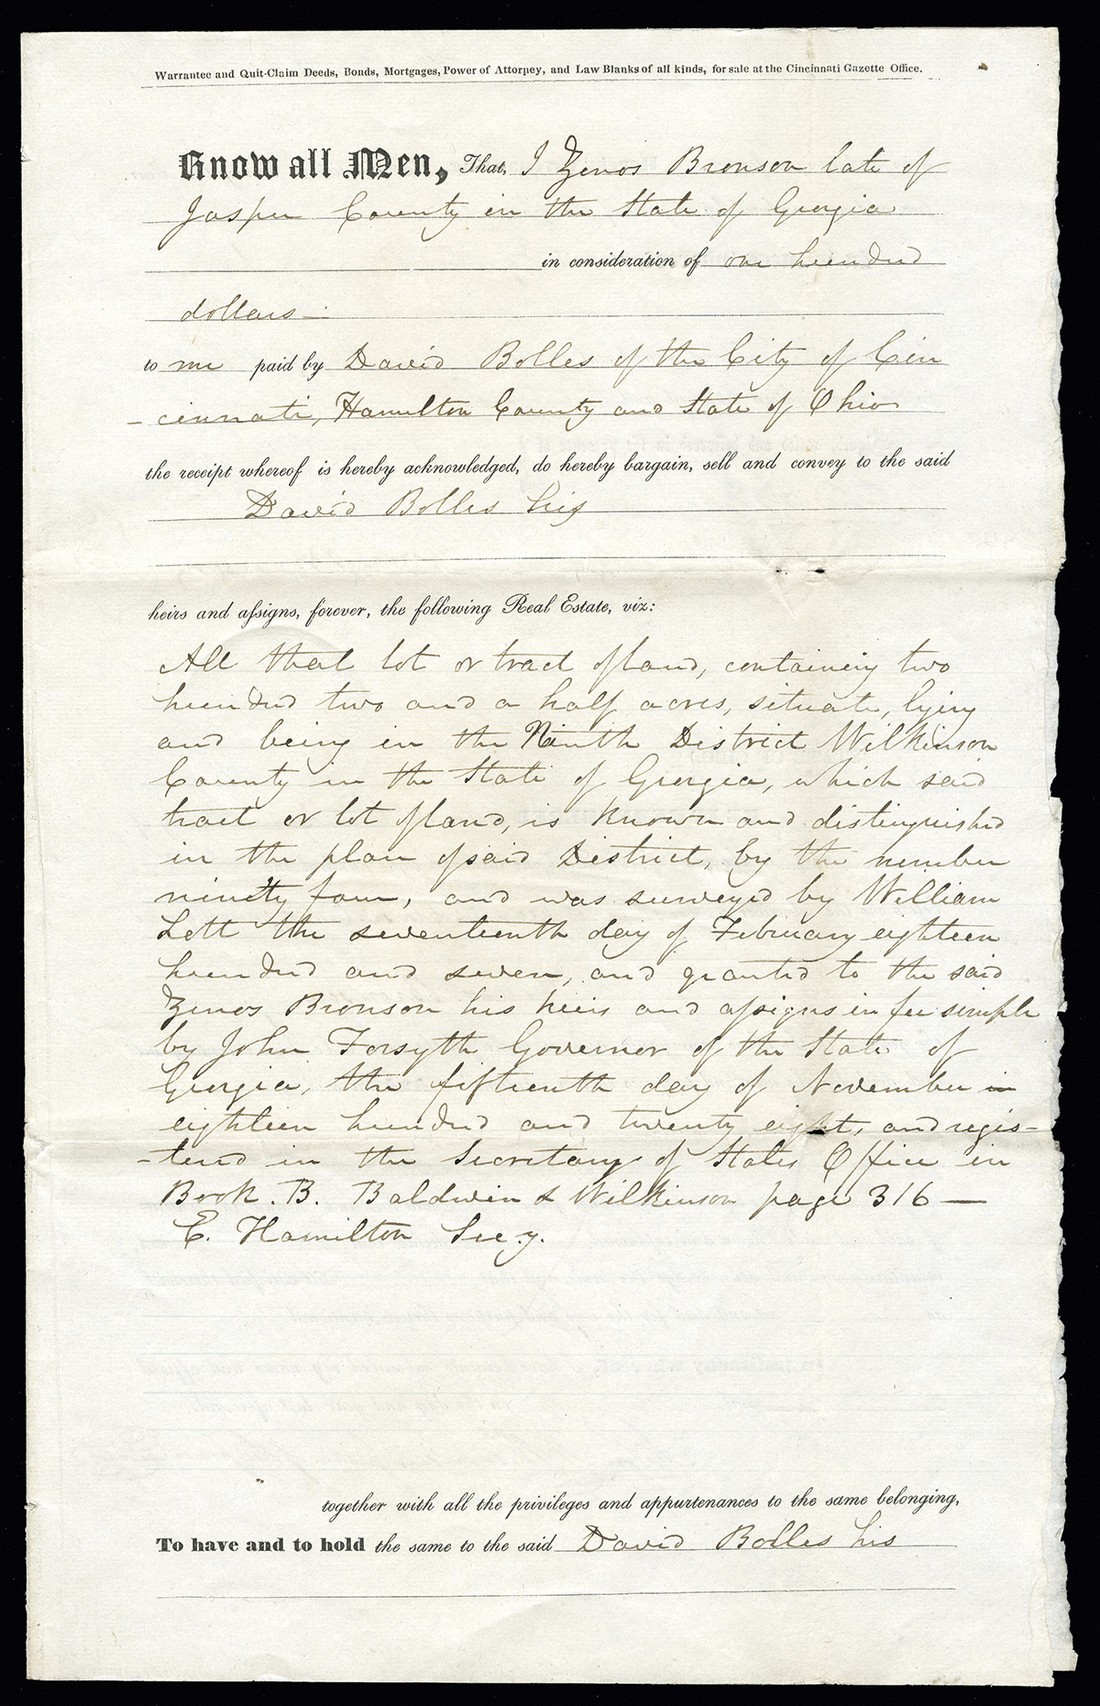 Warrantee and Quit-Claim Deeds, Bonds, Mortgages, Power of Attorney, and Law Blanks of all kinds, for sale at the Cincinnati Gazette Office.
Know all Men, That, I Zenos Bronson late of
Jasper County in the State of Georgia
in consideration of one hundred
dollars —
to me paid by David Bolles of the City of Cin
- cinnati, Hamilton County and State of Ohio
the receipt whereof is hereby acknowledged, do hereby bargain, sell and convey to the said
David Bolles his
heirs and assigns, forever, the following Real Estate, viz:
All that lot or tract of land, containing two
hundred two and a half acres, situate, lying
and being in the Ninth District Wilkinson
County in the State of Georgia, which said
tract or lot of land, is known and distinguished
in the plan of said District, by the number
ninety four, and was surveyed by William
Lett the seventeenth day of February eighteen
hundred and seven, and granted to the said
Zenos Bronson his heirs and assigns in fee simple
by John Forsyth Governor of the State of
Georgia, the fifteenth day of November in
eighteen hundred and twenty eight, and regis-
-tered in the Secretary of States Office in
Book. B. Baldwin & Wilkinson page 316 —
E. Hamilton Sec.y.
together with all the privileges and appurtenances to the same belonging,
To have and to hold the same to the said David Bolles his